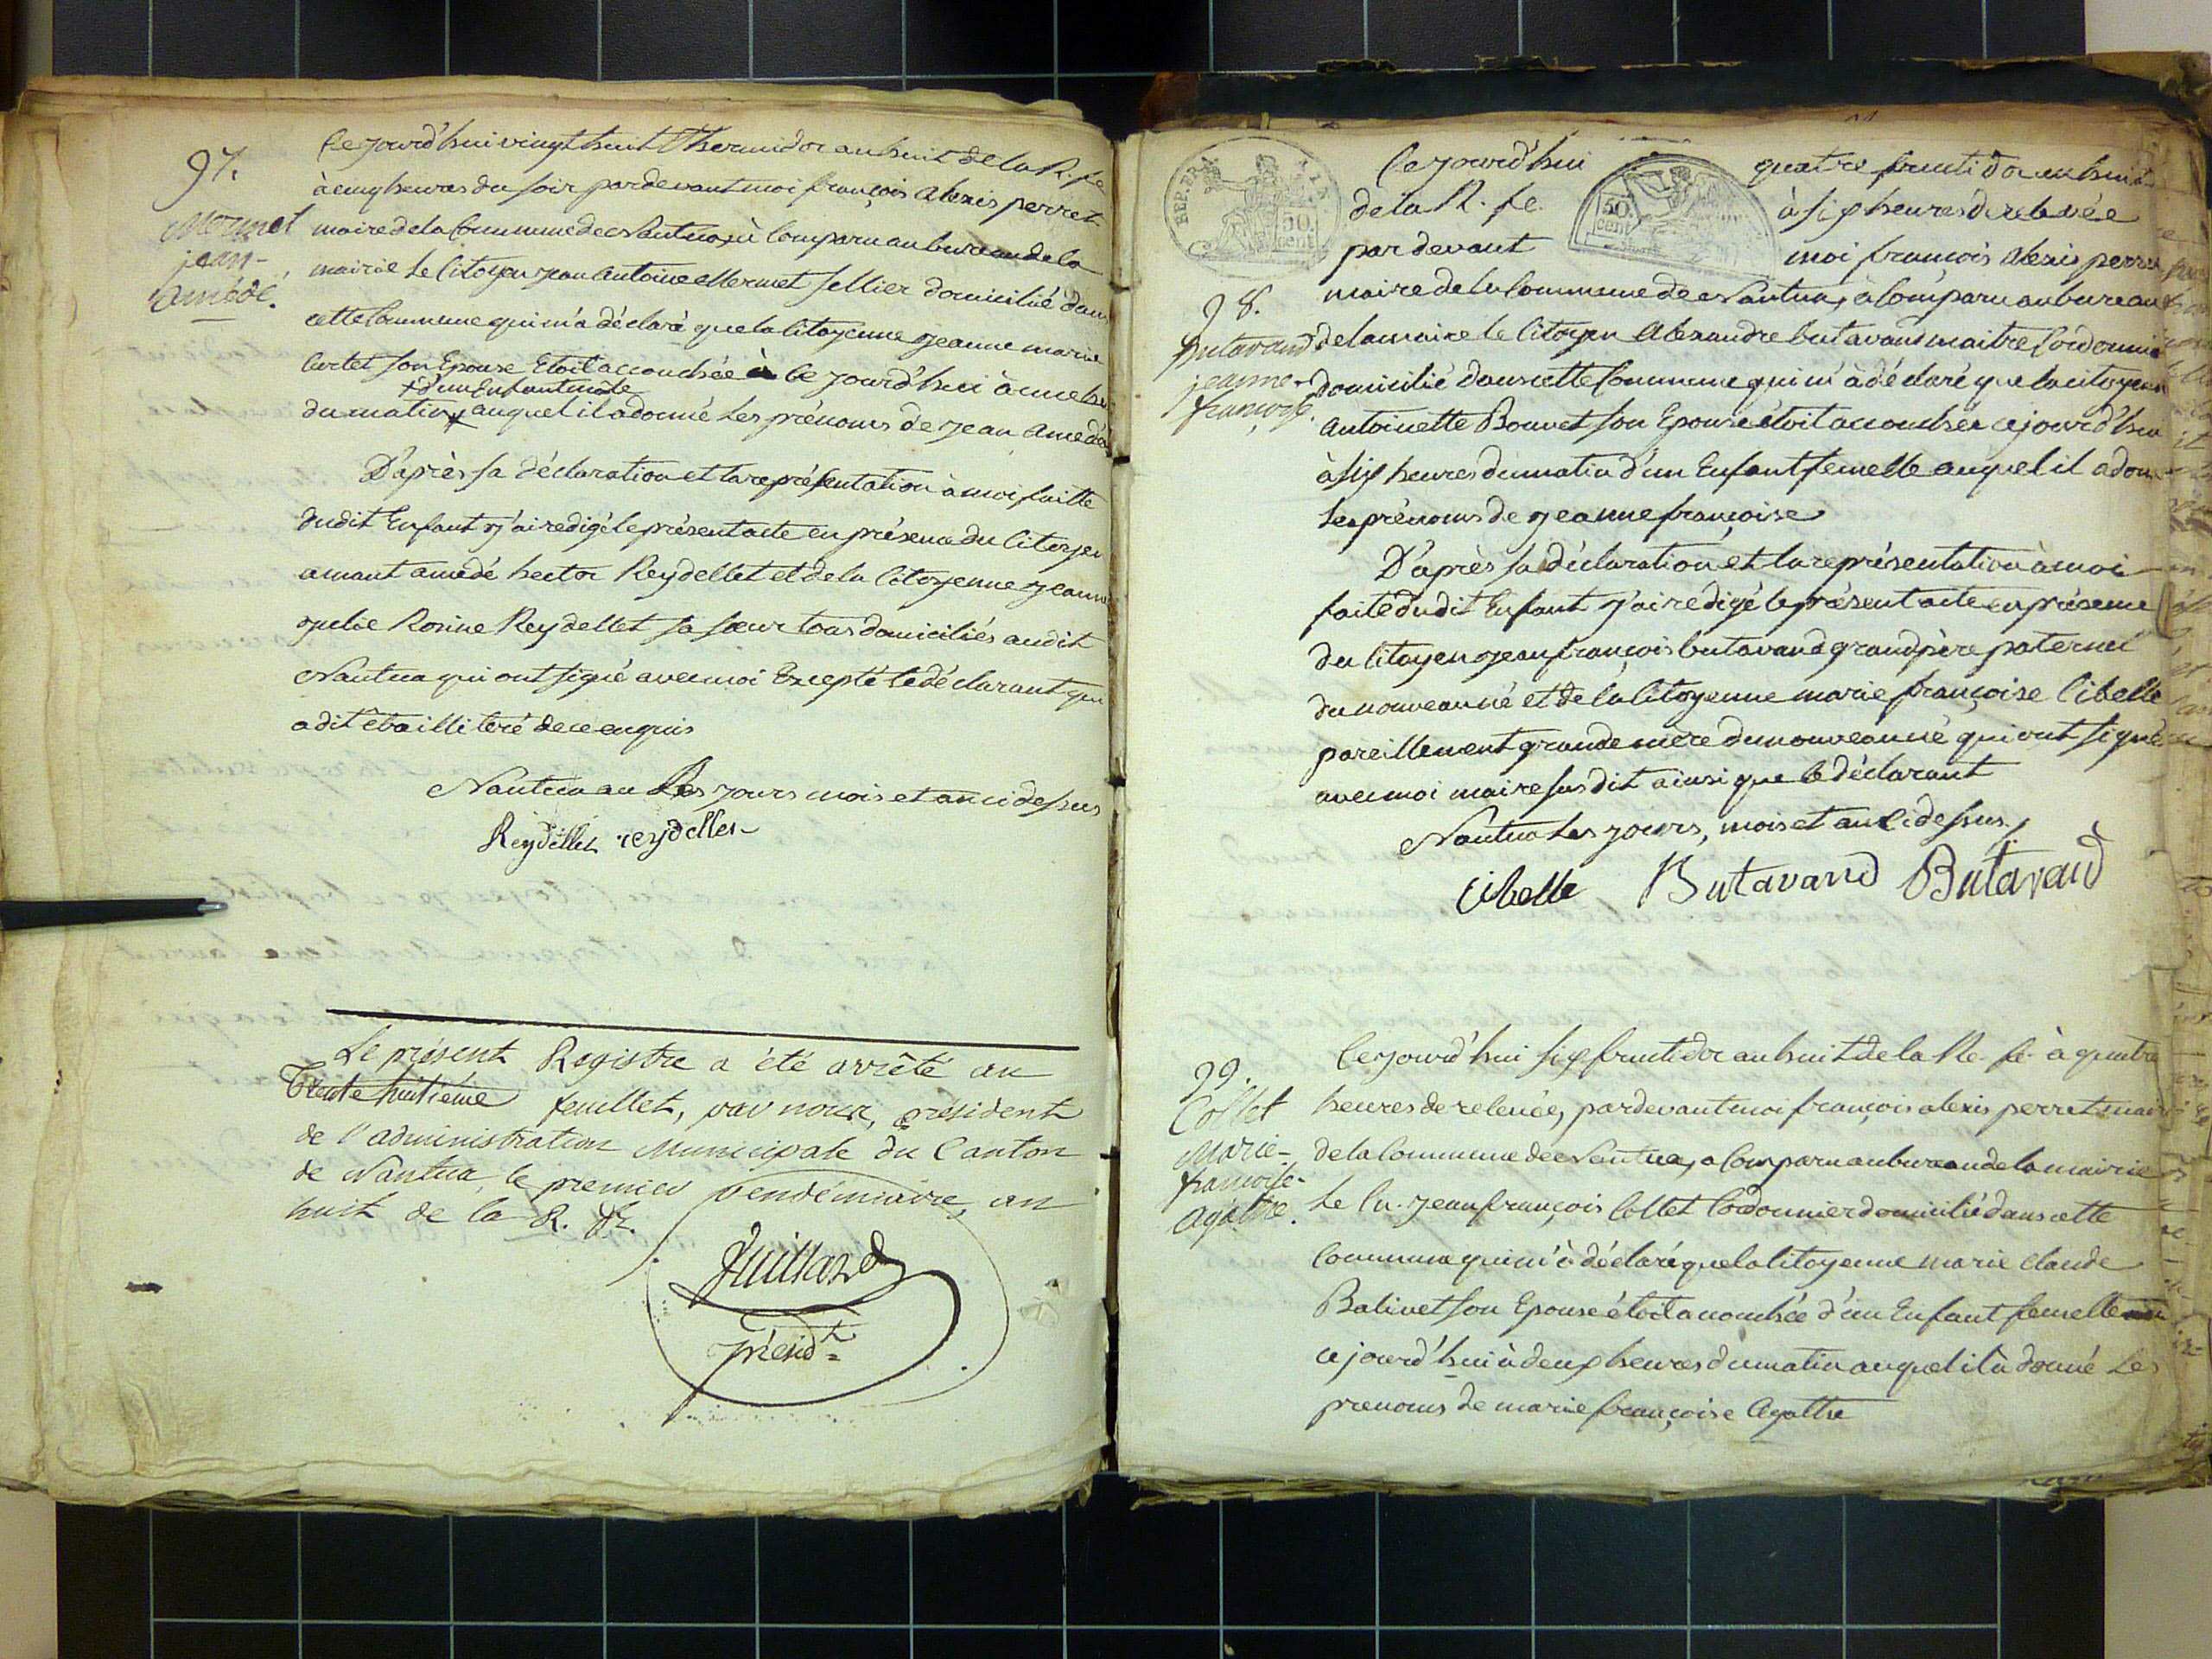 97.
Mermet
jean-
amédé.
Cejourd'hui vingt huit Thermidor an huit de la R. fe
à cinq heures du soir pardevant moi françois alexis perret
maire de la Commune de Nantua, à Comparu au bureau de la
mairie le Citoyen jean antoine Mermet sellier domicilié dans
cette Commune qui m'a déclaré que la Citoyenne jeanne marie
son Epouse Etoit accouchée à Ce jourd'hui à une
+ d'un Enfant mâle
du matin + auquel il a donné les prénoms de jean amedé
D'après sa déclaration et la représentation à moi faitte
dudit Enfant j'ai redigé le présent acte en présence du Citoyen
amant amedé hector Reydellet et de la Citoyenne jeanne
julie Rosine Reydellet sa sœur tous domiciliés audit
Nantua qui ont signé avec moi Excepté le déclarant qui
a dit être illiteré de ce enquis
Nantua au Les jours mois et an ci dessus
Reydellet reydellet
Le présent Registre a été arrêté au
Trente huitième feuillet, par nous, président
de l'administration Municipale du Canton
de Nantua, le premier vendémiaire, an
huit de la R. fr.
Juillard
présidt
REP. FRA.
50.
cent
50.
cent
Cejourd'hui quatre fructidor an huit
de la R. fe. à six heures de relevée
par devant moi françois alexis perret
98.
Butavand
jeanne-
françoise.
maire de la Commune de Nantua, à Comparu au bureau
de la maire le Citoyen Alexandre butavand maitre Cordonnier
domicilié dans cette Commune qui m'à déclaré que la citoyenne
antoinette Bonnet son Epouse étoit accouchée cejourd'hui
à six heures du matin d'un Enfant femelle auquel il a donné
les prénoms de jeanne françoise
D'après sa déclaration et la représentation à moi
faite dudit Enfant j'ai redigé le présent acte en présence
du Citoyen jean françois butavand grand père paternel
du nouveau né et de la Citoyenne marie françoise Cibelle
pareillement grande mere du nouveau né qui ont signé
avec moi maire susdit ainsi que le déclarant
Nantua les jours, mois et an Ci dessus.
Cibelle Butavand Butavand
99.
Collet
Marie-
françoise-
agathe.
Cejourd'hui six fructidor an huit de la Re. fe. à quatre
heures de relevée, pardevant moi françois alexis perret maire
de la Commune de Nantua, a Comparu au bureau de la mairie
Le Cn. jean françois Collet Cordonnier domicilié dans cette
Commune qui m'à déclaré que la Citoyenne marie Claude
Balivet son Epouse étoit accouchée d'un Enfant femelle
cejourd'hui à deux heures du matin auquel il à donné les
prenoms de marie françoise Agathe